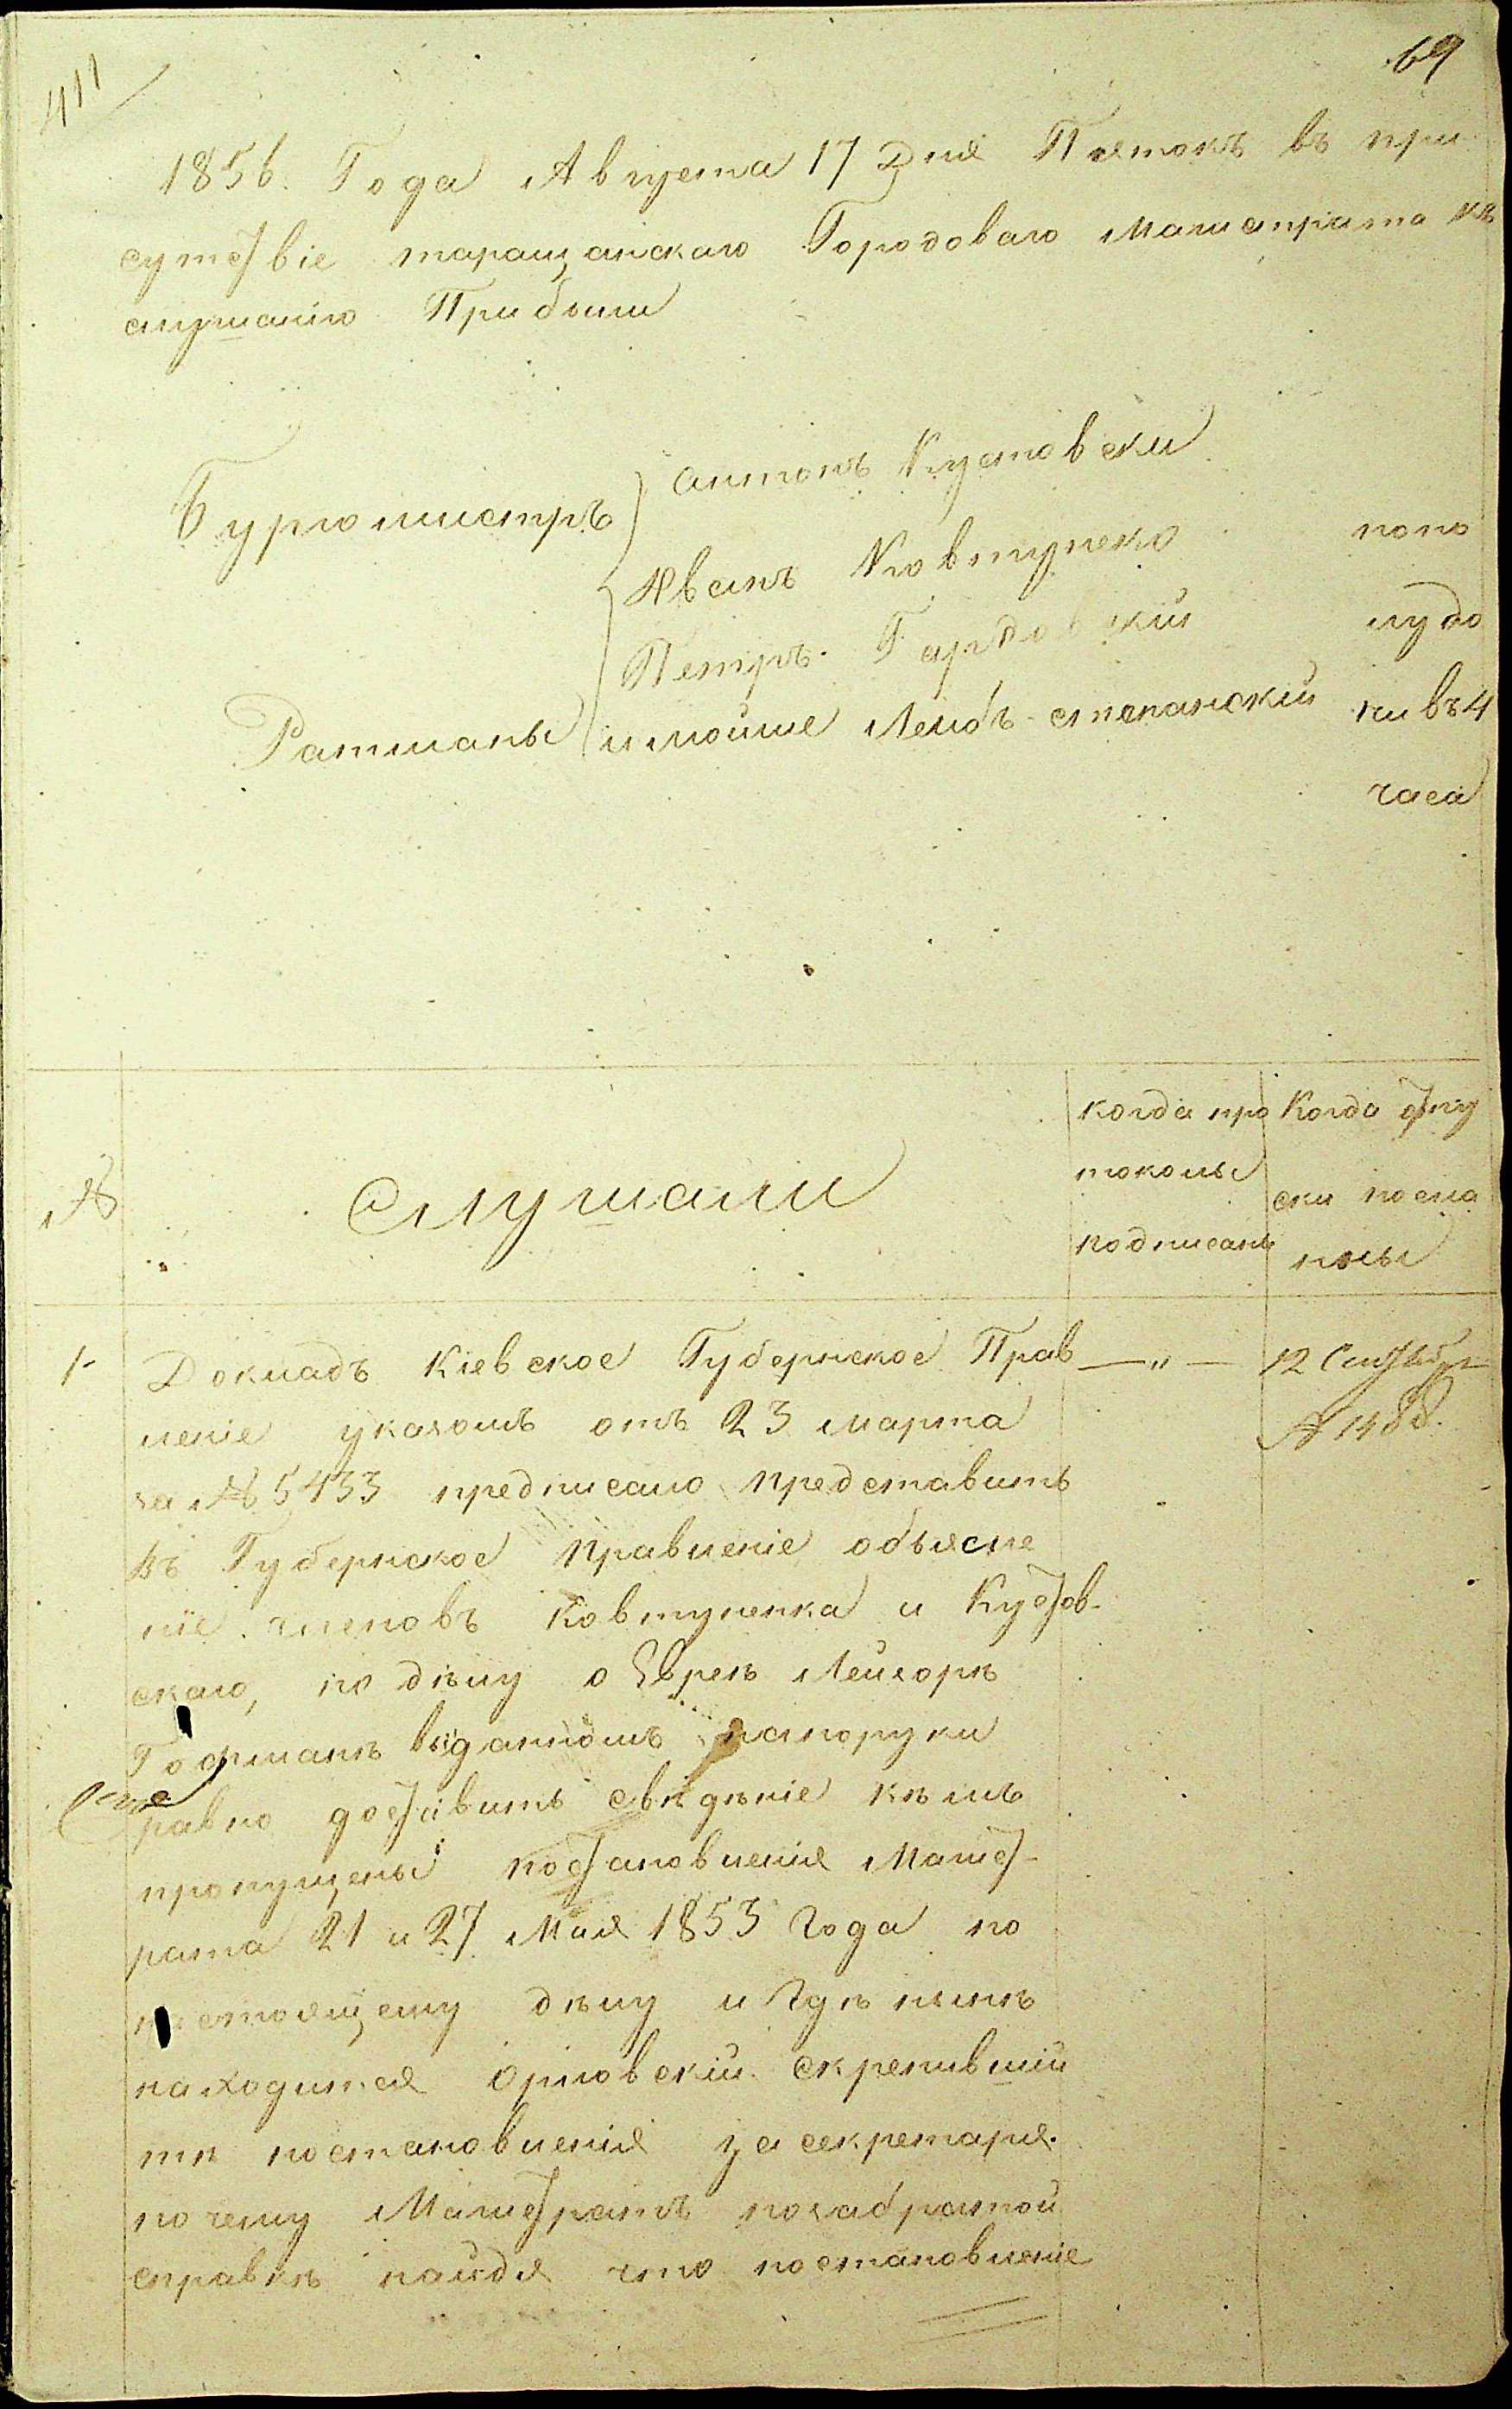 411
69
1856. Года Августа 17 Дня Пятокъ въ при
сутствіе таращанскаго Городоваго Магистрата къ
слушанію Прибыли
Бургомистръ
антонъ Кустовски
Иванъ Ковтунеко
Петръ Гардовский
Ратманы
и мойше Лейбъ степанский
попо
лудо
ни въ 4
часа
№
Слушали
когда про
токолы
подписаны
Когда отпу
ски посла
нны
1
Докладъ Кіевское Губернское Прав
леніе указомъ отъ 23 марта
за № 5433 предписало представить
въ Губернское правленіе объясне
ніе членовъ Ковтуненка и Кустов-
скаго, по дѣлу о Евреѣ Лейзорѣ
Гофманѣ выданномъ напоруки
равно доставить свѣдѣніе кѣмъ
пропущены постановленія Магист-
рата 21 и 27 Мая 1853 Года по
настоящему дѣлу и Гдѣ нынѣ
находится Орловскій скрепившій
тѣ постановленія за секретаря.
почему Магистратъ позабратной
справкѣ найдя что постановленіе
— „ —
12 Сентября
№ 1488.